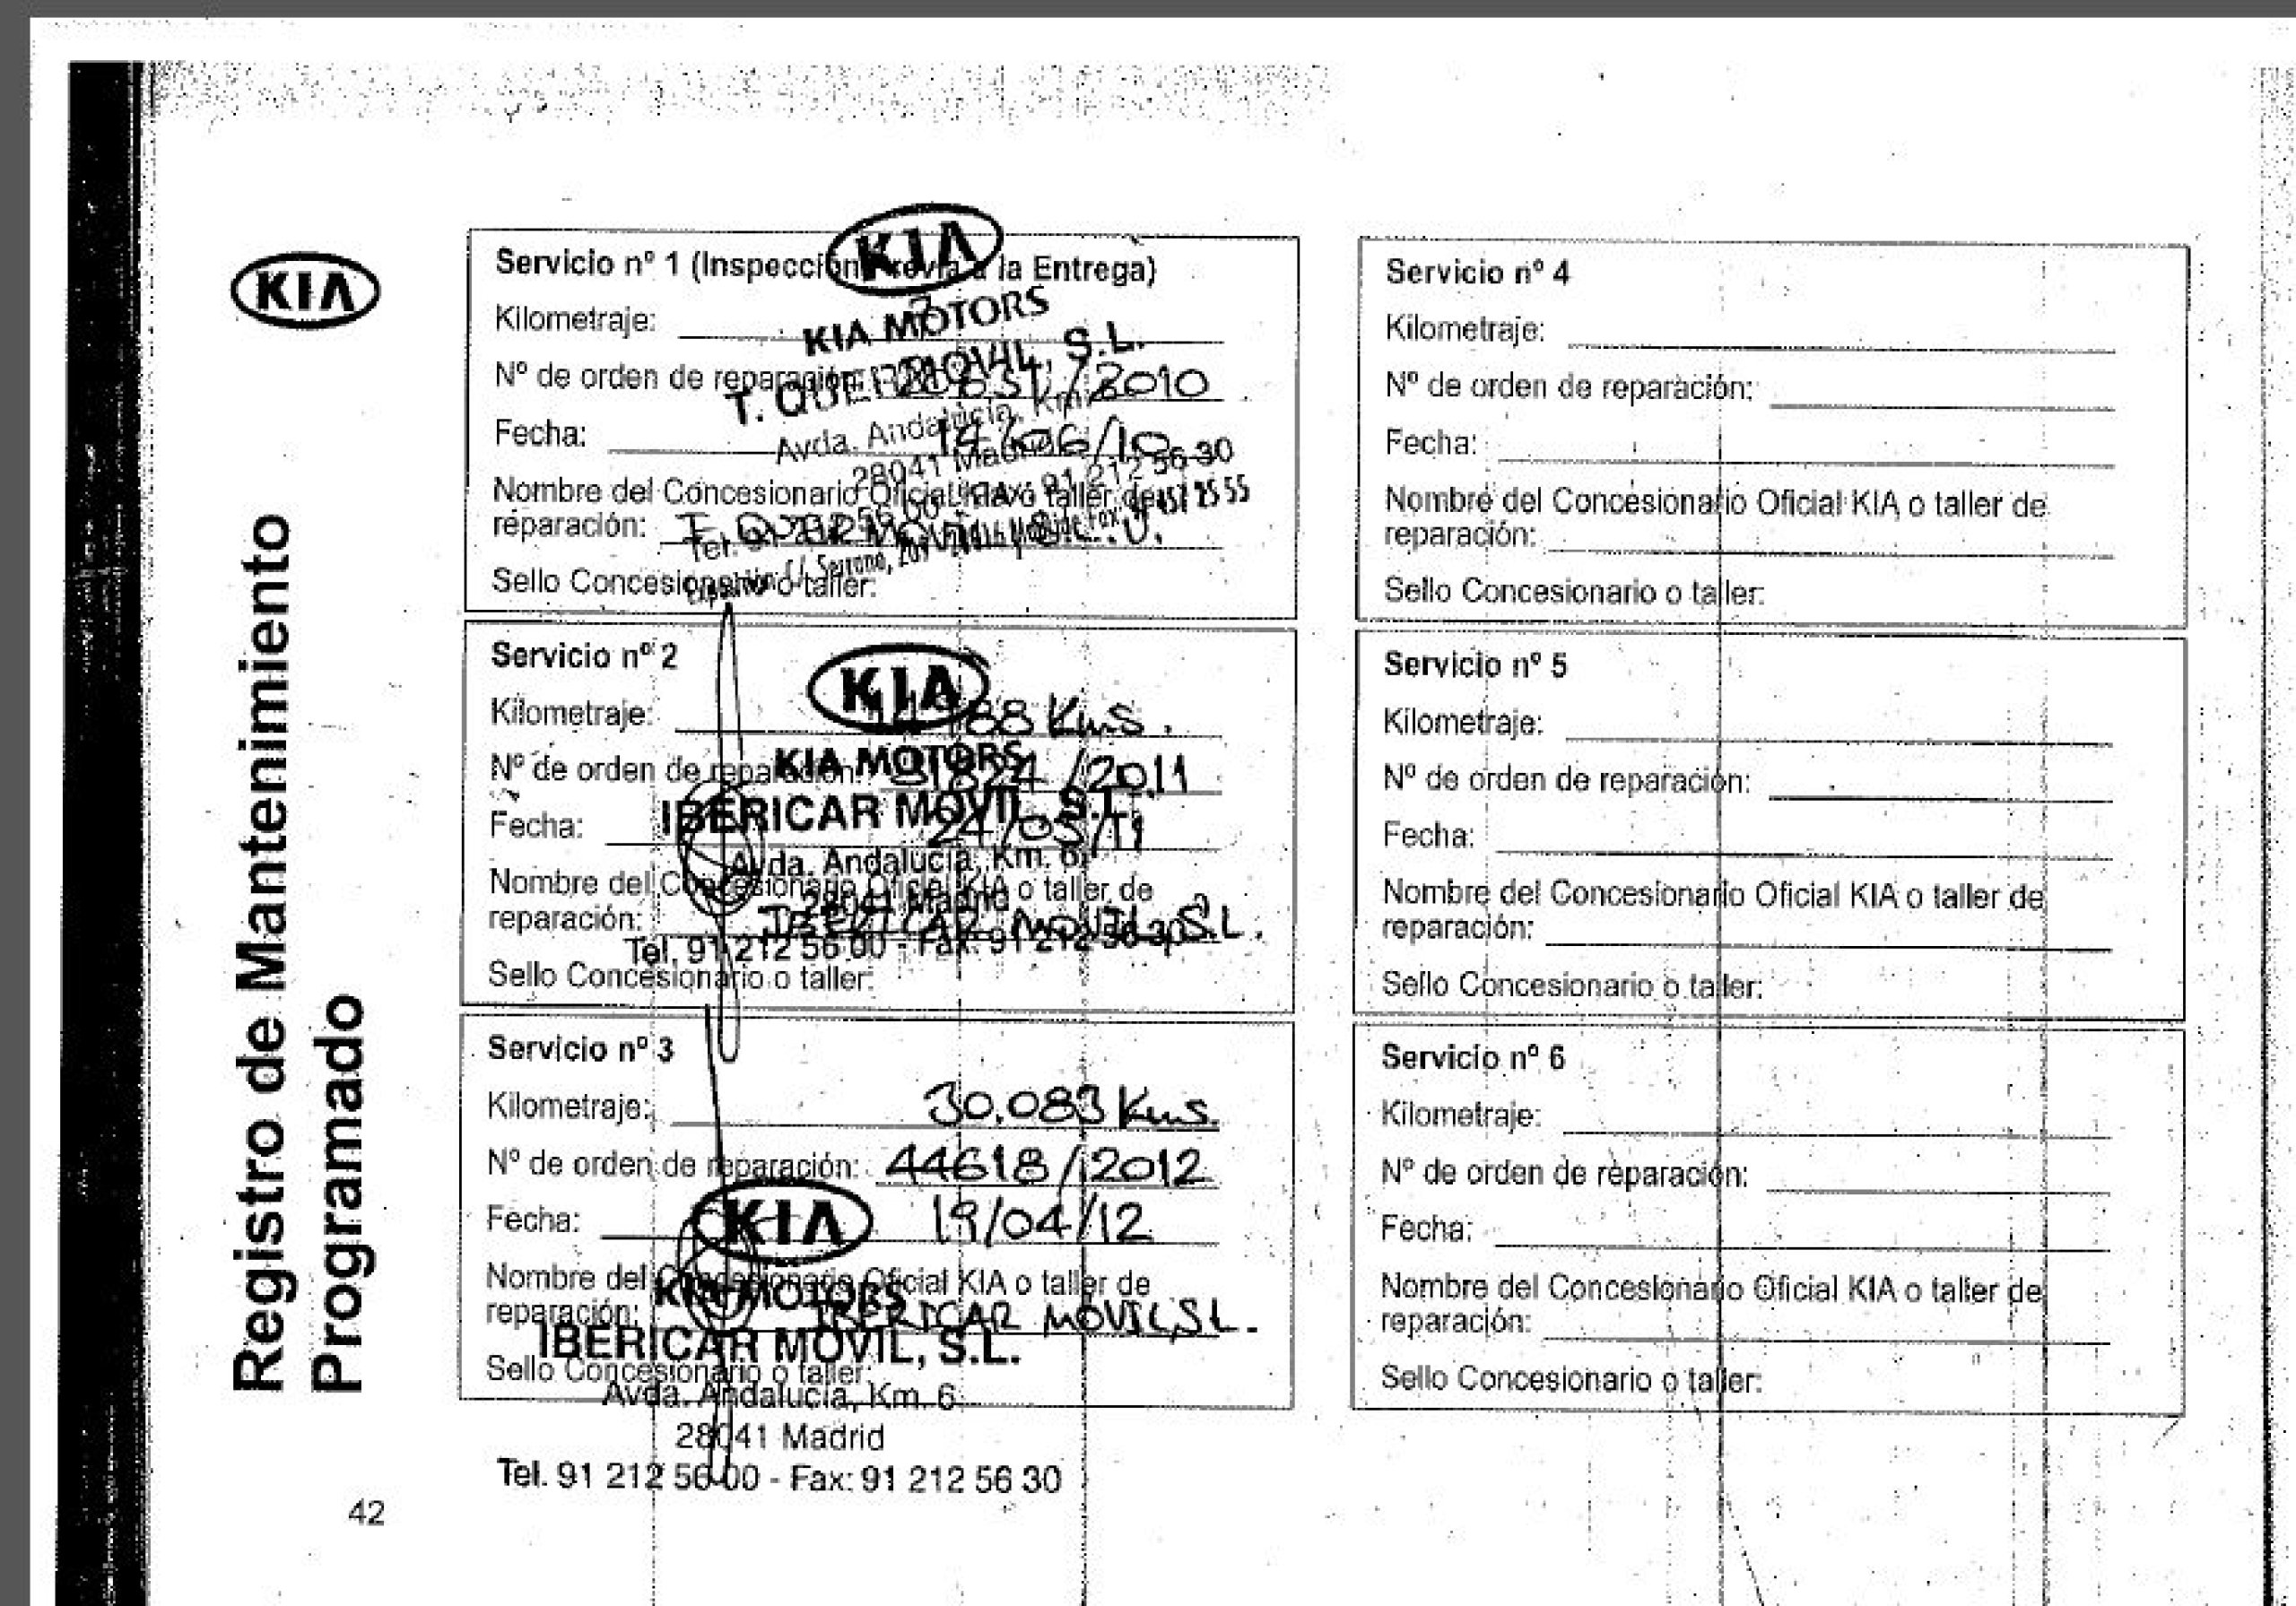 KIA
Registro de Mantenimiento
Programado
42
Servicio nº 1 (Inspección Previa a la Entrega)
KIA
Kilometraje:
KIA MOTORS
Nº de orden de reparación: /2010
T. QUER MOVIL, S.L.
Avda. Andalucía, Km.
Fecha: 14/06/10
28041 Madrid
Nombre del Concesionario Oficial KIA o taller de
reparación: T. QUER MOVIL, S.L.U.
Sello Concesionario o taller:
Servicio nº 2
KIA
Kilometraje: 88 Kms.
KIA MOTORS
Nº de orden de reparación: /2011
IBERICAR MOVIL, S.L.
Fecha: 24/05/11
Avda. Andalucía, Km. 6
Nombre del Concesionario Oficial KIA o taller de
28041 Madrid
reparación: IBERICAR MOVIL, S.L.
Tel. 91 212 56 00 - Fax: 91 212 56 30
Sello Concesionario o taller:
Servicio nº 3
Kilometraje: 30.083 Kms.
Nº de orden de reparación: 44618/2012
Fecha: 19/04/12
KIA
Nombre del Concesionario Oficial KIA o taller de
KIA MOTORS
reparación: IBERICAR MOVIL, SL.
IBERICAR MOVIL, S.L.
Sello Concesionario o taller:
Avda. Andalucía, Km. 6
28041 Madrid
Tel. 91 212 56 00 - Fax: 91 212 56 30
Servicio nº 4
Kilometraje:
Nº de orden de reparación:
Fecha:
Nombre del Concesionario Oficial KIA o taller de
reparación:
Sello Concesionario o taller:
Servicio nº 5
Kilometraje:
Nº de orden de reparación:
Fecha:
Nombre del Concesionario Oficial KIA o taller de
reparación:
Sello Concesionario o taller:
Servicio nº 6
Kilometraje:
Nº de orden de reparación:
Fecha:
Nombre del Concesionario Oficial KIA o taller de
reparación:
Sello Concesionario o taller: